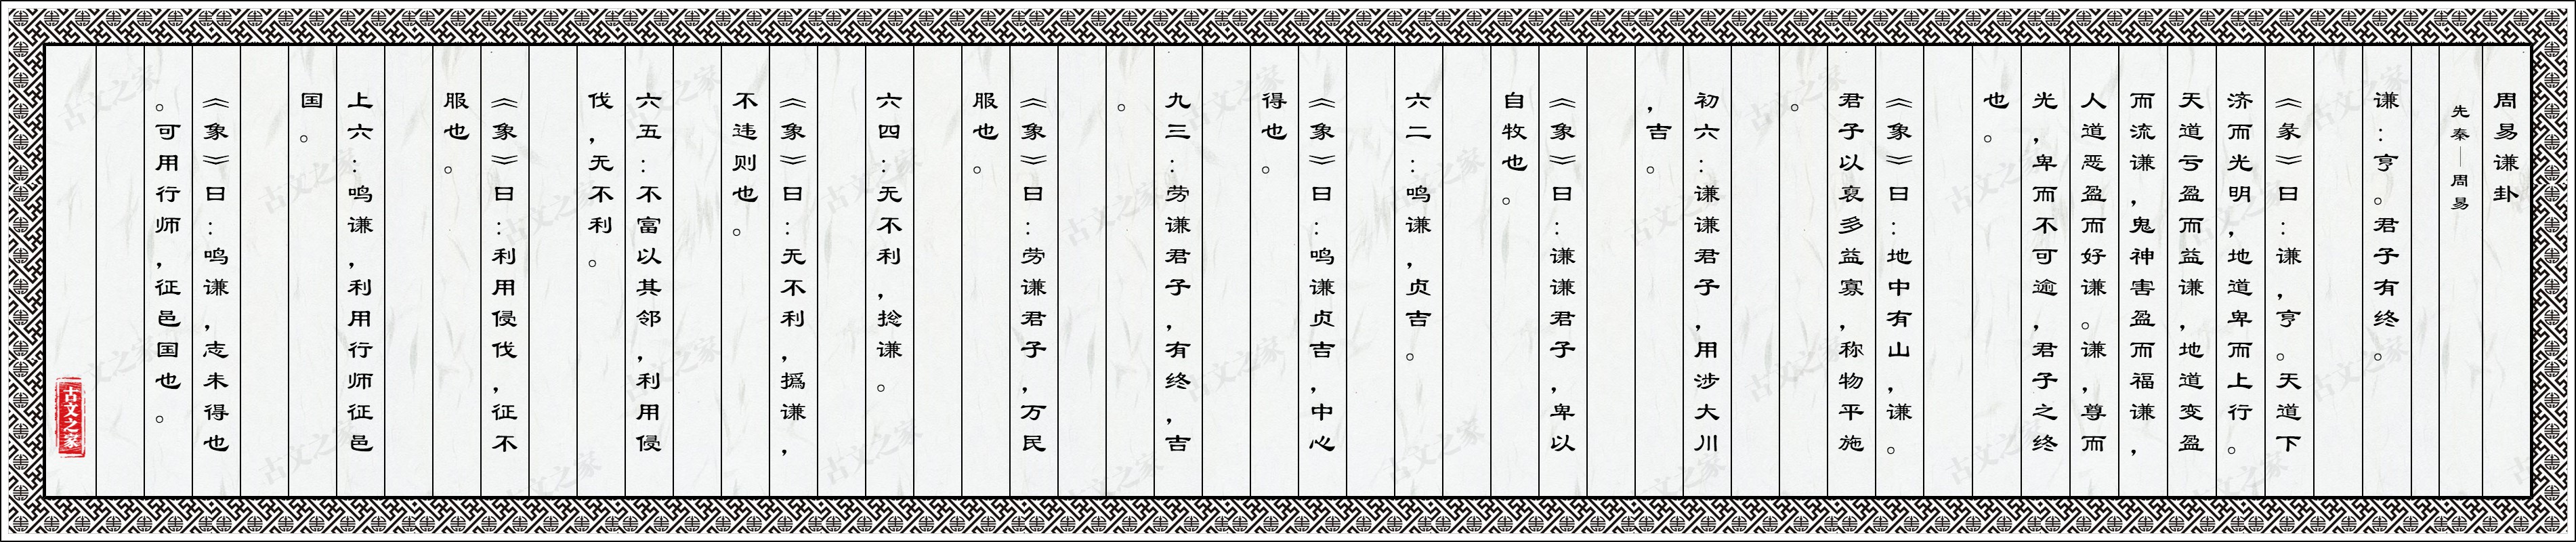 周易谦卦
先秦—周易
谦：亨。君子有终。
《彖》曰：谦，亨。天道下
济而光明，地道卑而上行。
天道亏盈而益谦，地道变盈
而流谦，鬼神害盈而福谦，
人道恶盈而好谦。谦，尊而
光，卑而不可逾，君子之终
也。
《象》曰：地中有山，谦。
君子以裒多益寡，称物平施
。
初六：谦谦君子，用涉大川
，吉。
《象》曰：谦谦君子，卑以
自牧也。
六二：鸣谦，贞吉。
《象》曰：鸣谦贞吉，中心
得也。
九三：劳谦君子，有终，吉
。
《象》曰：劳谦君子，万民
服也。
六四：无不利，捴谦。
《象》曰：无不利，撝谦，
不违则也。
六五：不富以其邻，利用侵
伐，无不利。
《象》曰：利用侵伐，征不
服也。
上六：鸣谦，利用行师征邑
国。
《象》曰：鸣谦，志未得也
。可用行师，征邑国也。
古文之家